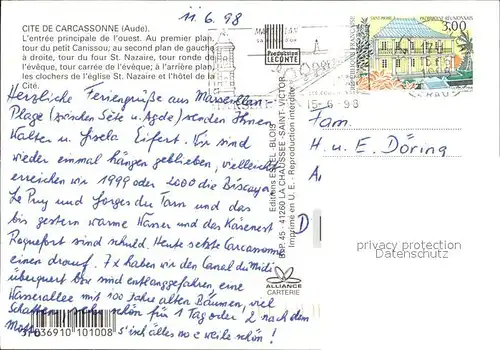 11.6.98
CITE DE CARCASSONNE (Aude).
L'entrée principale de l'ouest. Au premier plan,
tour du petit Canissou; au second plan de gauche
à droite, tour du four St. Nazaire, tour ronde de
l'évêque, tour carrée de l'évêque; à l'arrière plan,
les clochers de l'église St. Nazaire et l'hôtel de la
Cité.
Herzliche Feriengrüße aus Marseillan-
Plage (zwischen Sète u. Agde) senden Ihnen
Walter u. Gisela Eifert. Wir sind
wieder einmal hängen geblieben, vielleicht
erreichen wir 1999 oder 2000 die Biscaya.
Le Puy und Gorges du Tarn und das
bis gestern warme Wasser und das Käsenest
Roquefort sind schuld. Heute setzte Carcassonne
einen drauf. 7x haben wir den Canal du Midi
überquert bzw. sind entlanggefahren, eine
Wasserallee mit 100 Jahre alten Bäumen, viel
Schatten, sehr schön für 1 Tag oder 2 nach dem
Motto: s'isch alles no e weile schön!
3703691010 1008
Production
LECONTE
Editions ESTEL-BLOIS
B.P. 45 - 41260 LA CHAUSSEE-SAINT-VICTOR
Imprimé en U.E. - Reproduction interdite
ALLIANCE
CARTERIE
MARSEILLAN
15-6-98
REPUBLIQUE FRANÇAISE
PATRIMOINE REUNIONNAIS
3,00
Fam.
H. u. E. Döring
D
privacy protection
Datenschutz